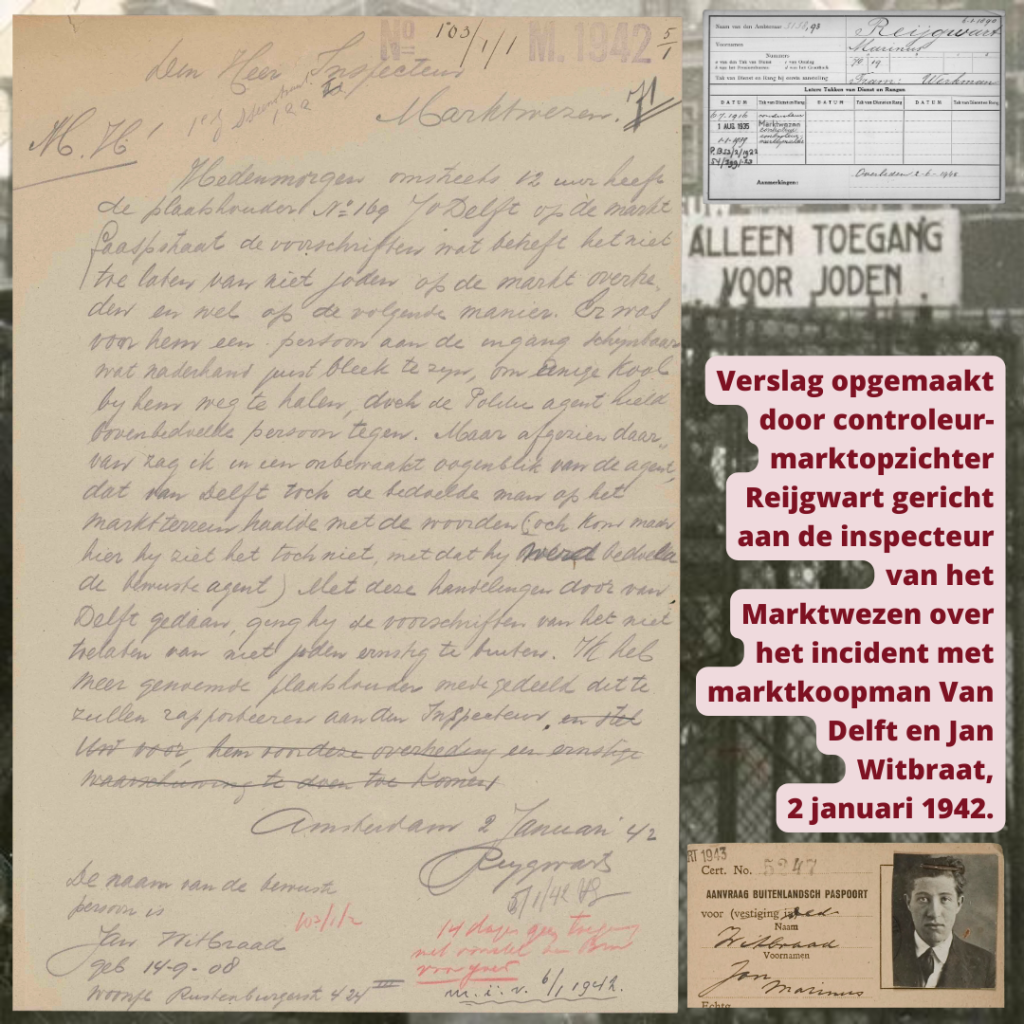 No 103/1/1 M. 1942 5/1
Den Heer Inspecteur
Marktwezen.
M. H!
Hedenmorgen omstreets 12 uur heeft
de plaatshouder No 169 Jo Delft op de markt
Gaaspstraat de voorschriften wat betreft het niet
toe laten van niet joden op de markt overtre,
den en wel op de volgende manier. Er was
voor hem een persoon aan de ingang schynbaar
wat naderhand juist bleek te zyn, om eenige Kool
by hem weg te halen, doch de Politie agent hield
bovenbedoelde persoon tegen. Maar afgezien daar,
van zag ik in een onbewaakt oogenblik van de agent,
dat van Delft toch de bedoelde man op het
marktterrein haalde met de woorden (och kom maar
hier hy ziet het toch niet, met dat hy werd bedoeld
de bewuste agent) Met deze handelingen door van
Delft gedaan, ging hy de voorschriften van het niet
toelaten van niet joden ernstig te buiten. Ik heb
meer genoemde plaatshouder mede gedeeld dit te
zullen rapporteeren aan den Inspecteur, en stel
UW voor, hem voor deze overtreding een ernstige
waarschuwing te doen toe komen
Amsterdam 2 Januari 42
Reijgwart
5/1/42
De naam van de bewuste
persoon is
Jan Witbraad
geb 14-9-08
woonst Rustenburgerst 424 III
103/1/2
14 dagen geen toegang
m.i.v. 6/1 1942.
Naam van den Ambtenaar
Reijgwart
Voornamen
Marinus
Nummers
Tak van Dienst en Rang bij eerste aanstelling Tram: Werkman
Latere Takken van Dienst en Rangen
DATUM Tak van Dienst en Rang DATUM Tak van Dienst en Rang DATUM Tak van Dienst en Rang
1 AUG. 1935 Marktwezen
Aanmerkingen:
Overleden
ALLEEN TOEGANG
VOOR JODEN
Verslag opgemaakt
door controleur-
marktopzichter
Reijgwart gericht
aan de inspecteur
van het
Marktwezen over
het incident met
marktkoopman Van
Delft en Jan
Witbraat,
2 januari 1942.
RT 1943
Cert. No. 5247
AANVRAAG BUITENLANDSCH PASPOORT
voor (vestiging in
Naam
Witbraad
Voornamen
Jan
Marinus
Echte